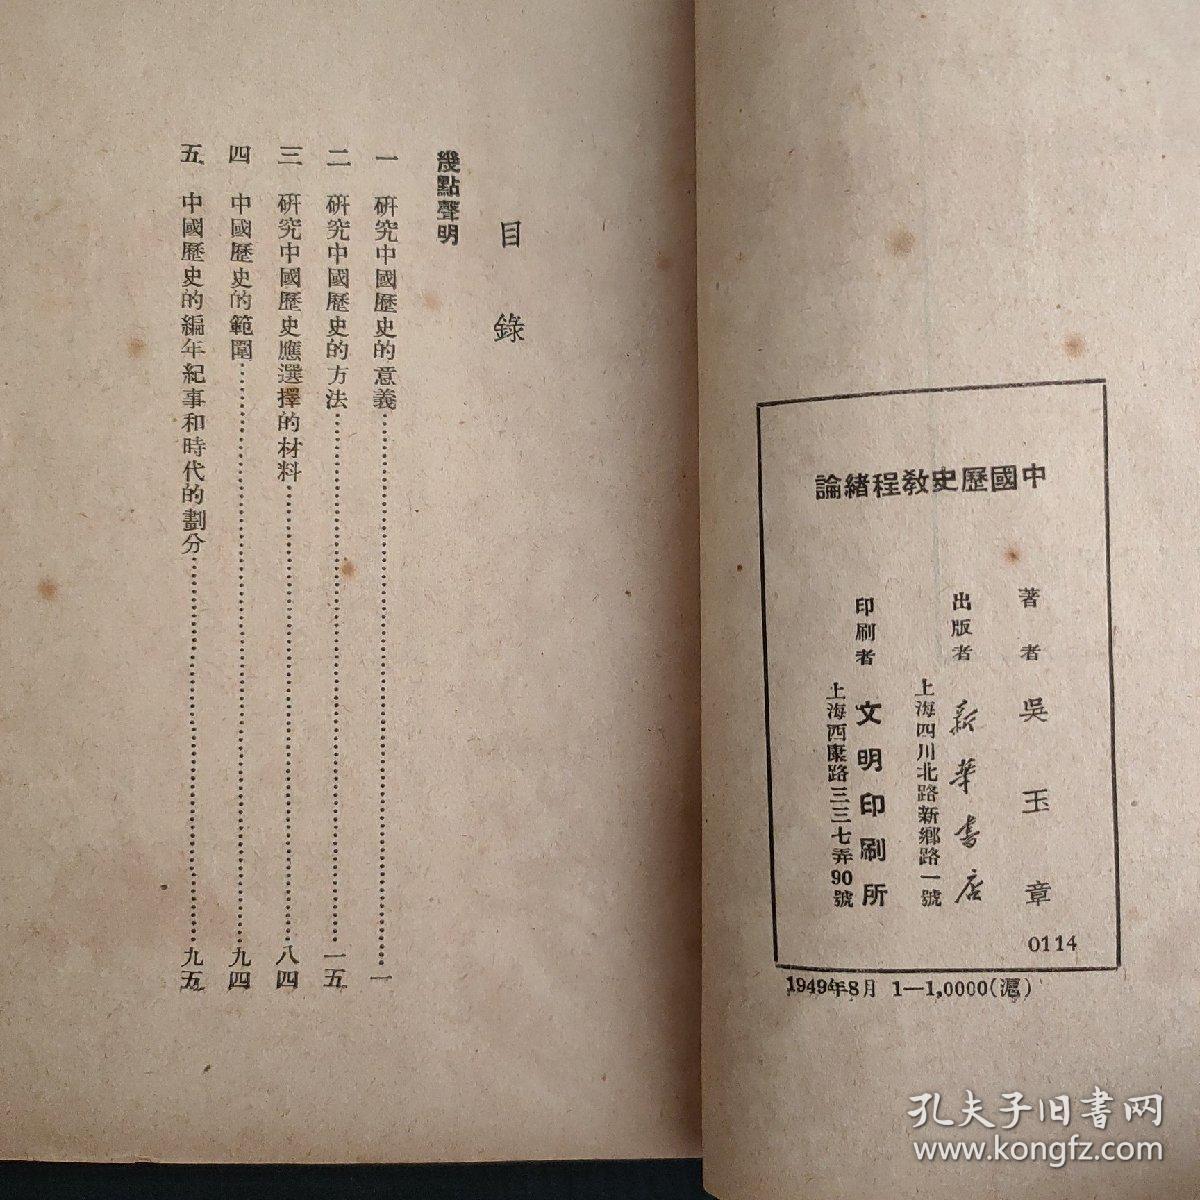 目錄
幾點聲明
一 研究中國歷史的意義……一
二 研究中國歷史的方法……一五
三 研究中國歷史應選擇的材料……八四
四 中國歷史的範圍……九四
五 中國歷史的編年紀事和時代的劃分……九五
中國歷史教程緒論
著者 吳玉章
出版者 新華書店
上海四川北路新鄉路一號
印刷者 文明印刷所
上海西康路三三七弄90號
0114
1949年8月 1—1,0000(滬)
孔夫子旧书网
www.kongfz.com